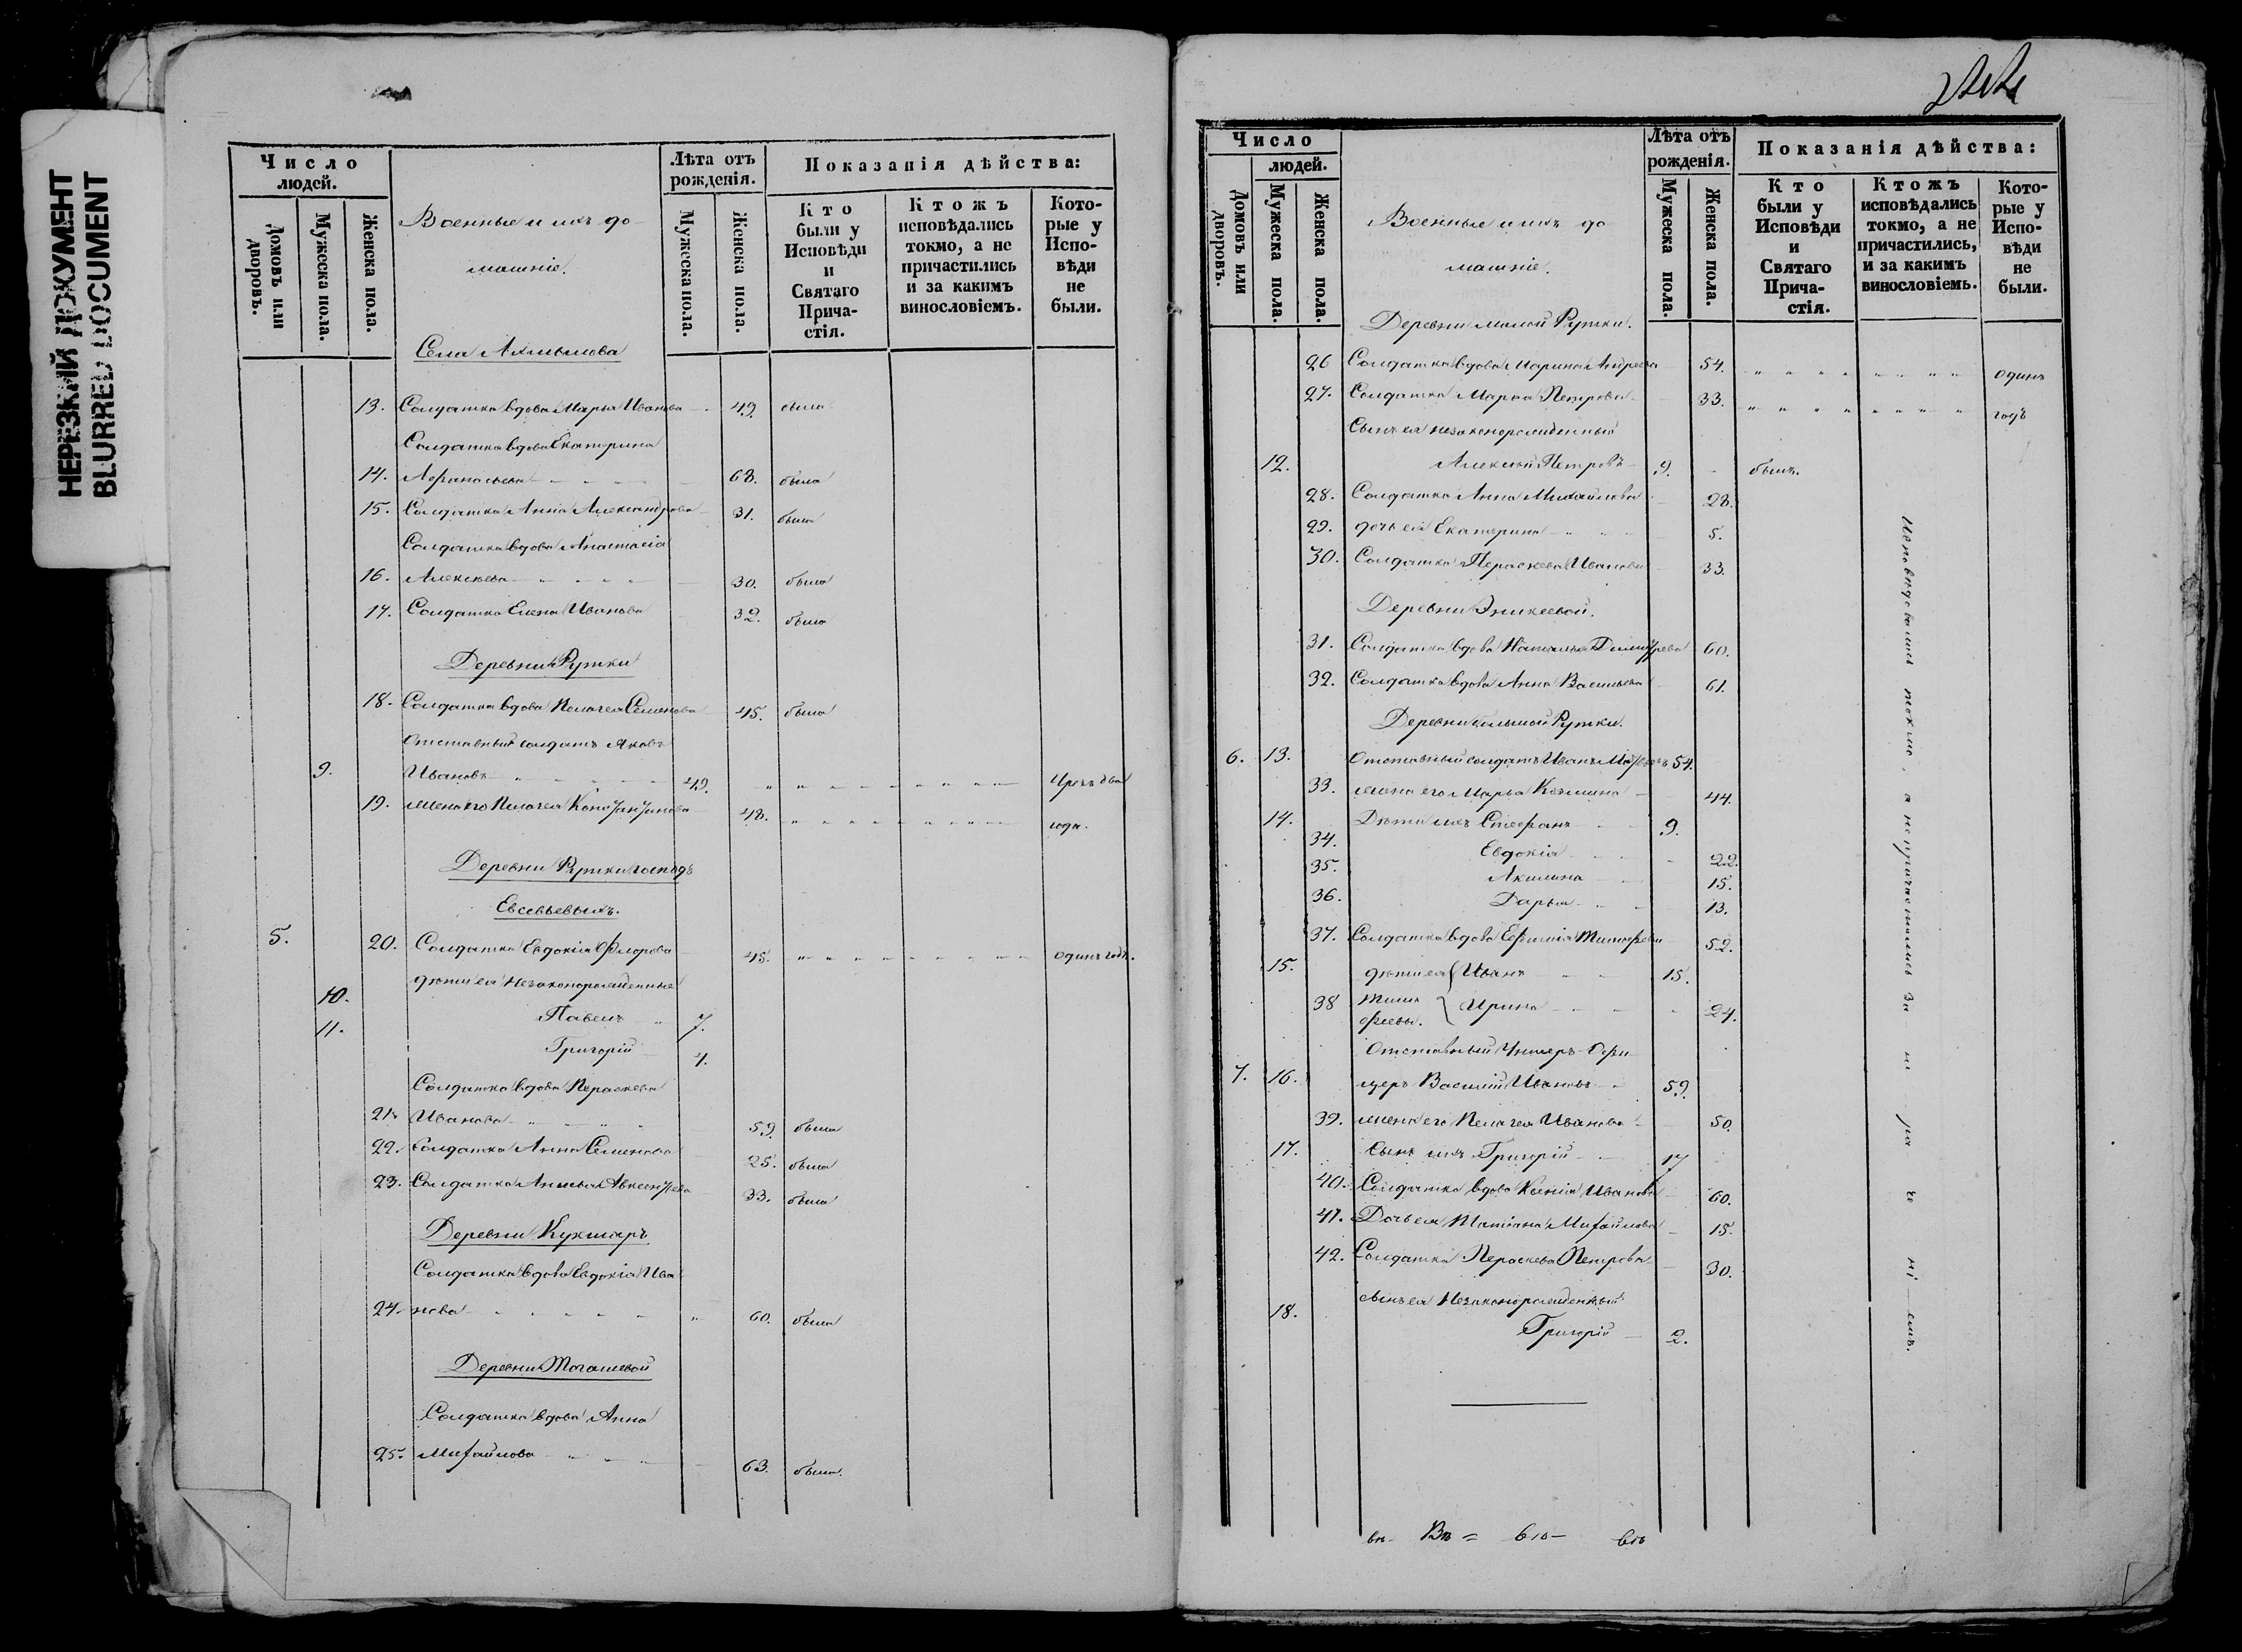 НЕРЕЗКИЙ ДОКУМЕНТ
BLURRED DOCUMENT
Число людей.
Домовъ или дворовъ.
Мужеска пола.
Женска пола.
Военные и ихъ до-
машніе.
Лѣта отъ рожденія.
Мужеска пола.
Женска пола.
Показанія дѣйства:
Кто были у Исповѣди и Святаго Прича-стія.
Ктожъ исповѣдались токмо, а не причастились и за какимъ винословіемъ.
Кото-рые у Испо-вѣди не были.
Села Ахмылова
13. Солдатка вдова Марья Иванова 49. была
Солдатка вдова Екатерина
14. Афанасьева 68. была
15. Солдатка Анна Александрова 31. была
Солдатка вдова Анастасія
16. Алексѣева 30. была
17. Солдатка Елена Иванова 32. была
Деревни Рутки
18. Солдатка вдова Пелагея Семенова 45. была
Отставный солдатъ Яковъ
9. Ивановъ 49. Чрезъ два
19. жена его Пелагея Константинова 48. года.
Деревни Рутки господъ
Евсевьевыхъ.
5. 20. Солдатка Евдокія Флорова 45. одинъ годъ.
дѣти ея незаконорожденные
10. Павелъ 7.
11. Григорій 4.
Солдатка вдова Параскева
21. Иванова 59. была
22. Солдатка Анна Семенова 25. была
23. Солдатка Анисья Авксентьева 33. была
Деревни Кухшаръ
Солдатка вдова Евдокія Ива
24. нова 60. была
Деревни Тогашевой
Солдатка вдова Анна
25. Михайлова 63. была.
Число людей.
Домовъ или дворовъ.
Мужеска пола.
Женска пола.
Военные и ихъ до
машніе.
Лѣта отъ рожденія.
Мужеска пола.
Женска пола.
Показанія дѣйства:
Кто были у Исповѣди и Святаго Прича-стія.
Ктожъ исповѣдались токмо, а не причастились, и за какимъ винословіемъ.
Кото-рые у Испо-вѣди не были.
Деревни малой Рутки.
26 Солдатка вдова Марина Андреева 54. одинъ
27. Солдатка Марѳа Петрова 33. годъ
Сынъ ея незаконорожденный
12. Алексѣй Петровъ 9. былъ.
28. Солдатка Анна Михайлова 28.
29. дочь ея Екатерина 5.
30. Солдатка Параскева Иванова 33.
Деревни Эникеевой.
31. Солдатка вдова Наталья Димитрева 60.
32. Солдатка вдова Анна Васильева 61.
Деревни большой Рутки.
6. 13. Отставный солдатъ Иванъ 54.
33. жена его Марья Козмина 44.
14. Дѣти ихъ Стефанъ 9.
34. Евдокія 22.
35. Акилина 15.
36. Дарья 13.
37. Солдатка вдова Евфимія Тимофеева 52.
15. дѣти ея Иванъ 15.
38 Тимо
фѣевы. Ирина 24.
Отставный Унтеръ-Офи
7. 16. церъ Василій Ивановъ 59.
39. жена его Пелагея Иванова 50.
17. сынъ ихъ Григорій 17
40. Солдатка вдова Ксенія Иванова 60.
41. Дочь ея Татіана Михайлова 15.
42. Солдатка Параскева Петрова 30.
сынъ ея Незаконорожденный
18. Григорій 2.
Исповѣдовались токмо, а не причастились за